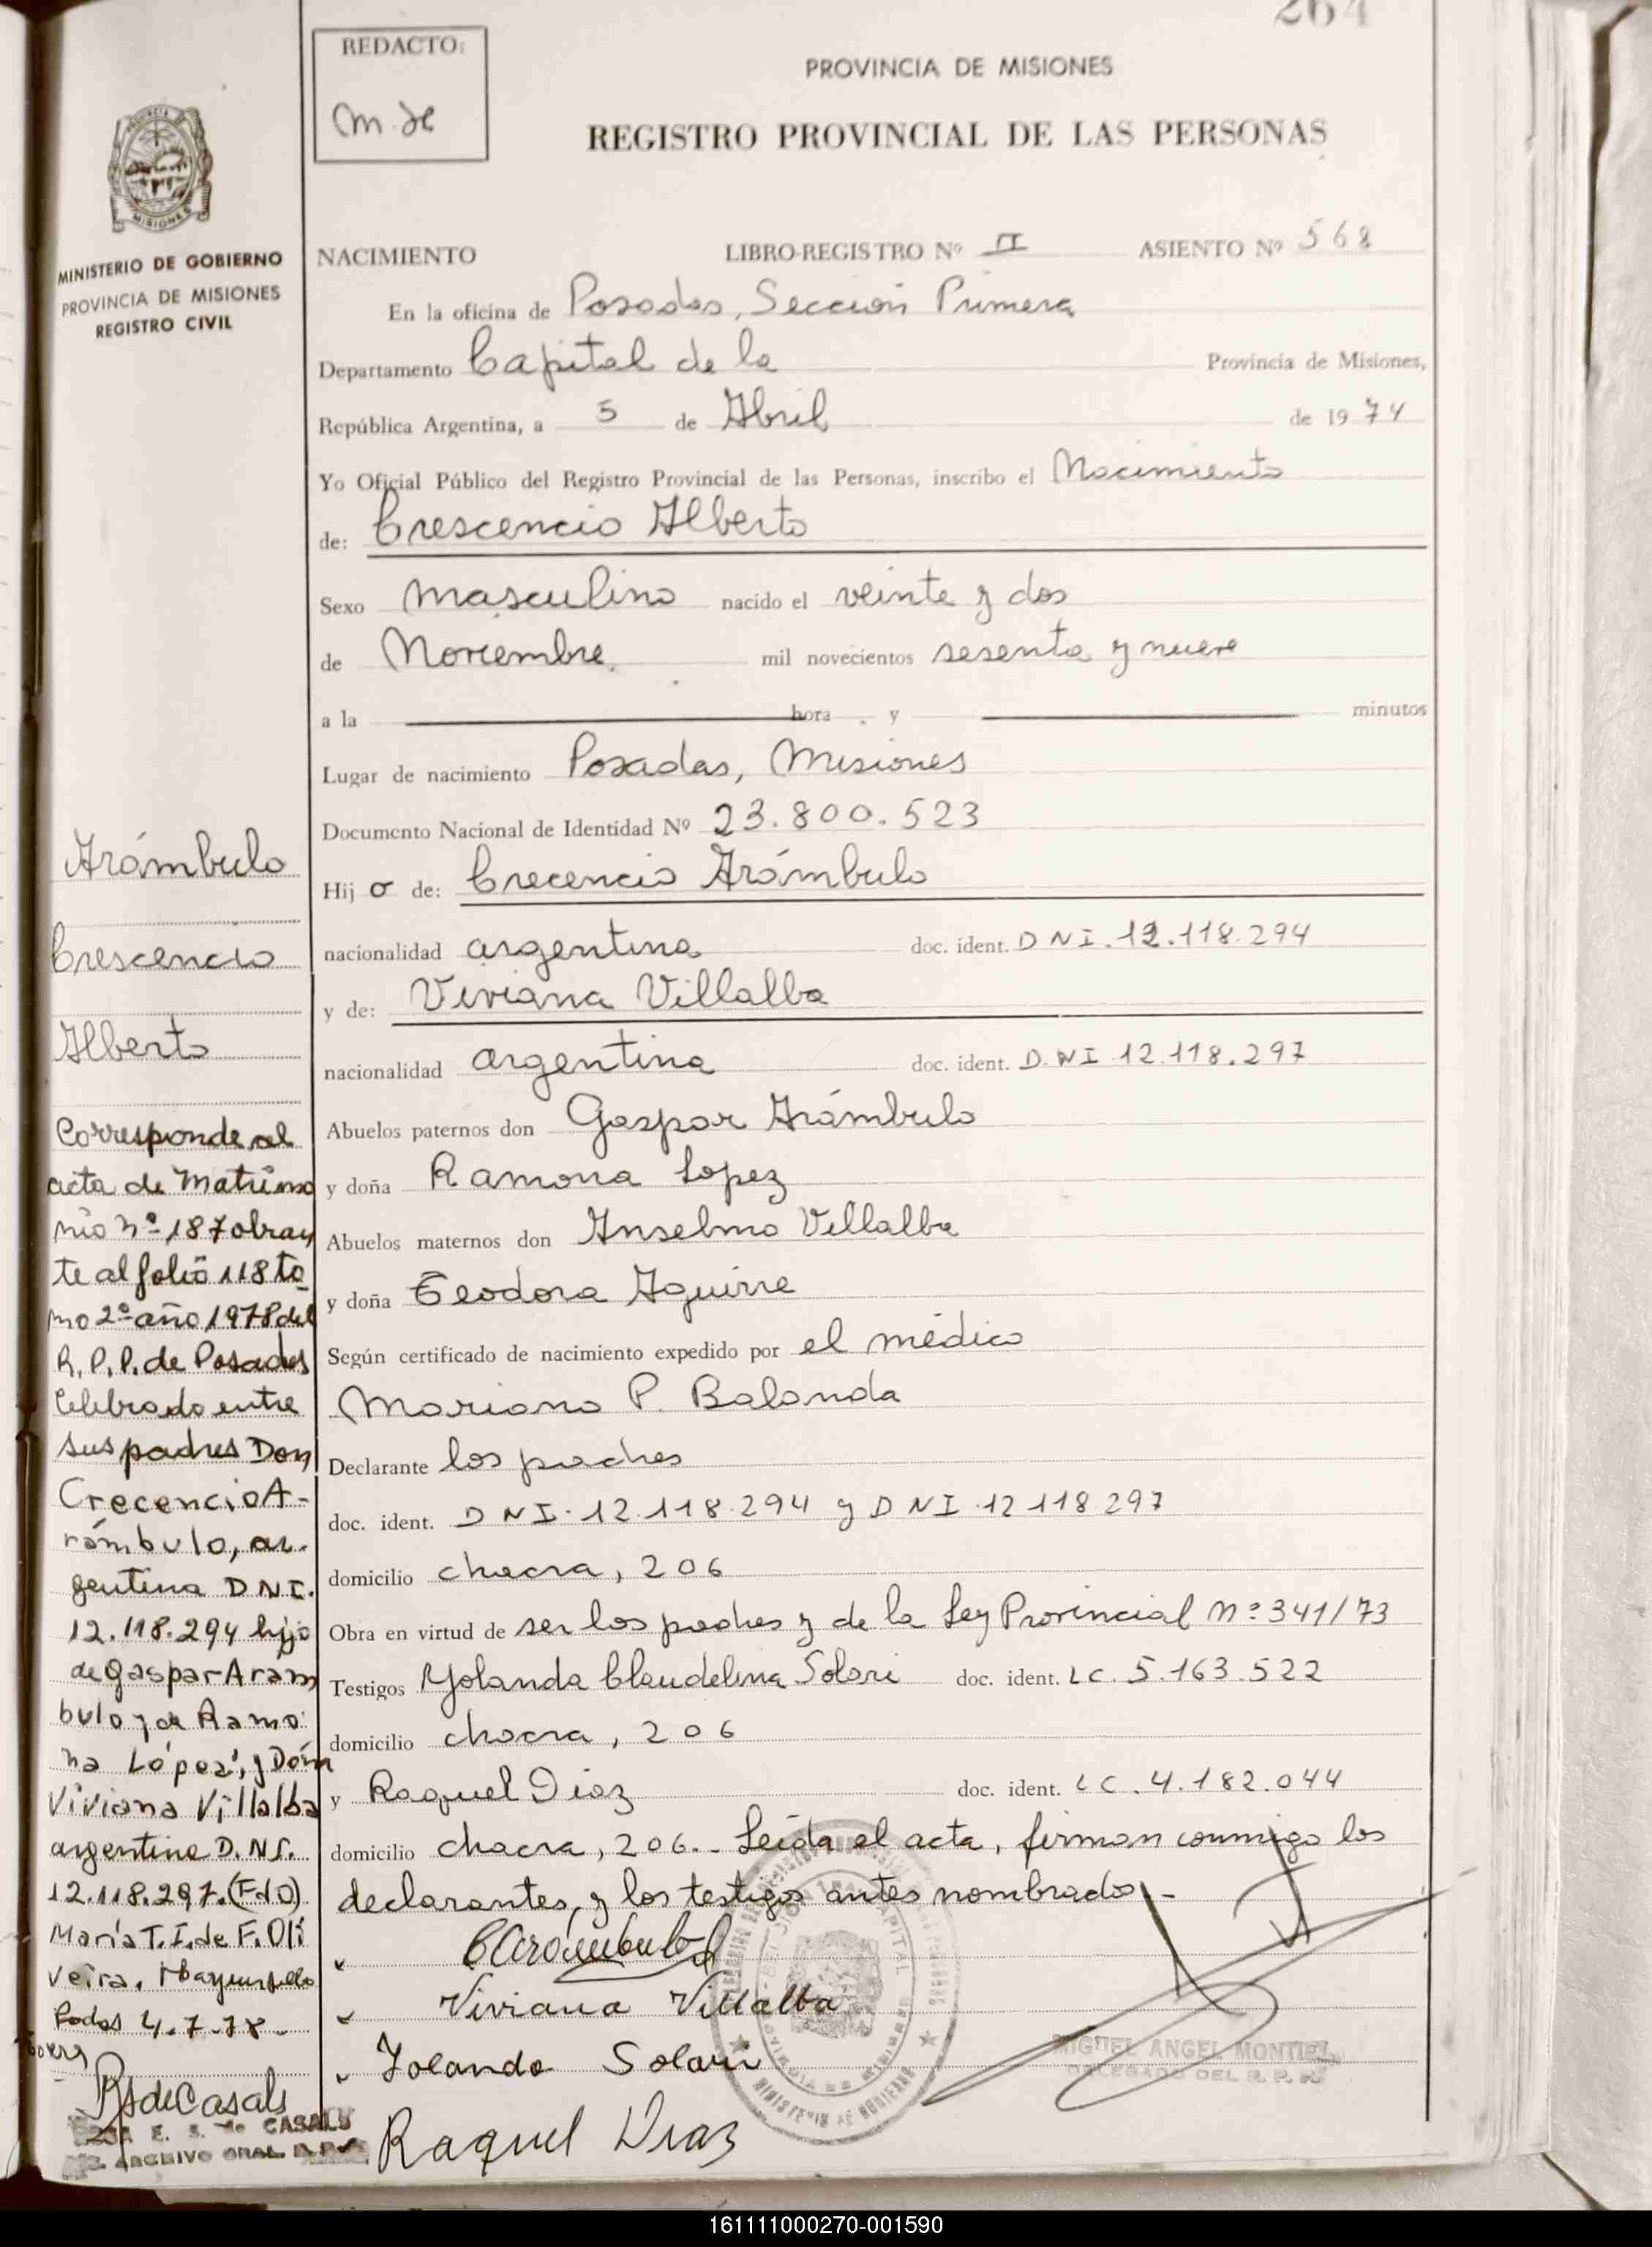 264
REDACTO:
PROVINCIA DE MISIONES
REGISTRO PROVINCIAL DE LAS PERSONAS
MISIONES
MINISTERIO DE GOBIERNO
PROVINCIA DE MISIONES
REGISTRO CIVIL
NACIMIENTO LIBRO-REGISTRO Nº II ASIENTO Nº 568
En la oficina de Posadas, Sección Primera
Departamento Capital de la Provincia de Misiones,
República Argentina, a 5 de Abril de 1974
Yo Oficial Público del Registro Provincial de las Personas, inscribo el Nacimiento
de: Crescencio Alberto
Sexo masculino nacido el veinte y dos
de Noviembre mil novecientos sesenta y nueve
a la hora y minutos
Lugar de nacimiento Posadas, Misiones
Documento Nacional de Identidad Nº 23.800.523
Hijo de: Crecencio Arámbulo
nacionalidad argentina doc. ident. DNI. 12.118.294
y de: Viviana Villalba
nacionalidad argentina doc. ident. D.NI 12.118.297
Abuelos paternos don Gaspar Arámbulo
y doña Ramona Lopez
Abuelos maternos don Anselmo Villalba
y doña Teodora Aguirre
Según certificado de nacimiento expedido por el médico
Mariano P. Balanda
Declarante los padres
doc. ident. DNI. 12.118.294 y DNI 12 118 297
domicilio chacra, 206
Obra en virtud de ser los padres y de la Ley Provincial nº 341/73
Testigos Yolanda Claudelina Solari doc. ident. LC. 5.163.522
domicilio chacra, 206
y Raquel Diaz doc. ident. LC. 4.182.044
domicilio chacra, 206.- Leída el acta, firman conmigo los
declarantes, y los testigos antes nombrado.-
CArámbulo
Viviana Villalba
Yolanda Solari
Raquel Diaz
MIGUEL ANGEL MONTIEL
DELEGADO DEL R. P. P.
Arámbulo
Crescencio
Alberto
Corresponde al
acta de Matrimo
nio nº 187 obran
te al folio 118 to
mo 2º año 1978 del
R.P.P. de Posadas
Celebrado entre
sus padres Don
Crecencio A-
rámbulo, ar-
gentina DNI.
12.118.294 hijo
de Gaspar Aram
bulo y de Ramo
na López, y Doña
Viviana Villalba
argentina D.NI.
12.118.297. (Fdo)
María T.I. de F. Oli
veira.
Podas 4.7.78
RSdeCasals
E. S. de CASALS
ARCHIVO GRAL. R.P.P.
161111000270-001590